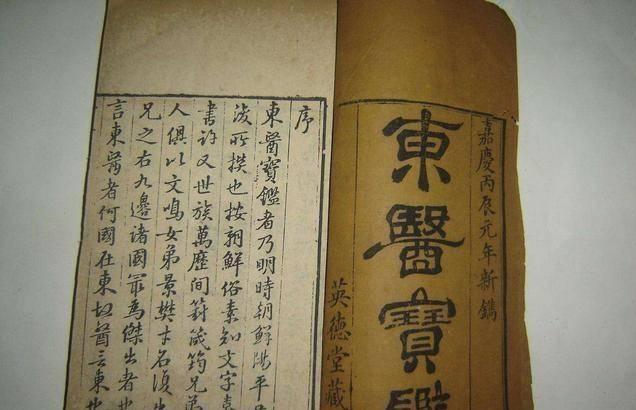 嘉慶丙辰元年新鐫
東醫寶鑑
英德堂藏
序
東醫寶鑑者乃明時朝鮮陽平
浚所撰也按朝鮮俗素知文字喜
書許又世族萬歷間葑筬筠兄弟
人俱以文鳴女弟景樊才名復出
兄之右九邊諸國冣爲傑出者也
言東醫者何國在東故醫言東也